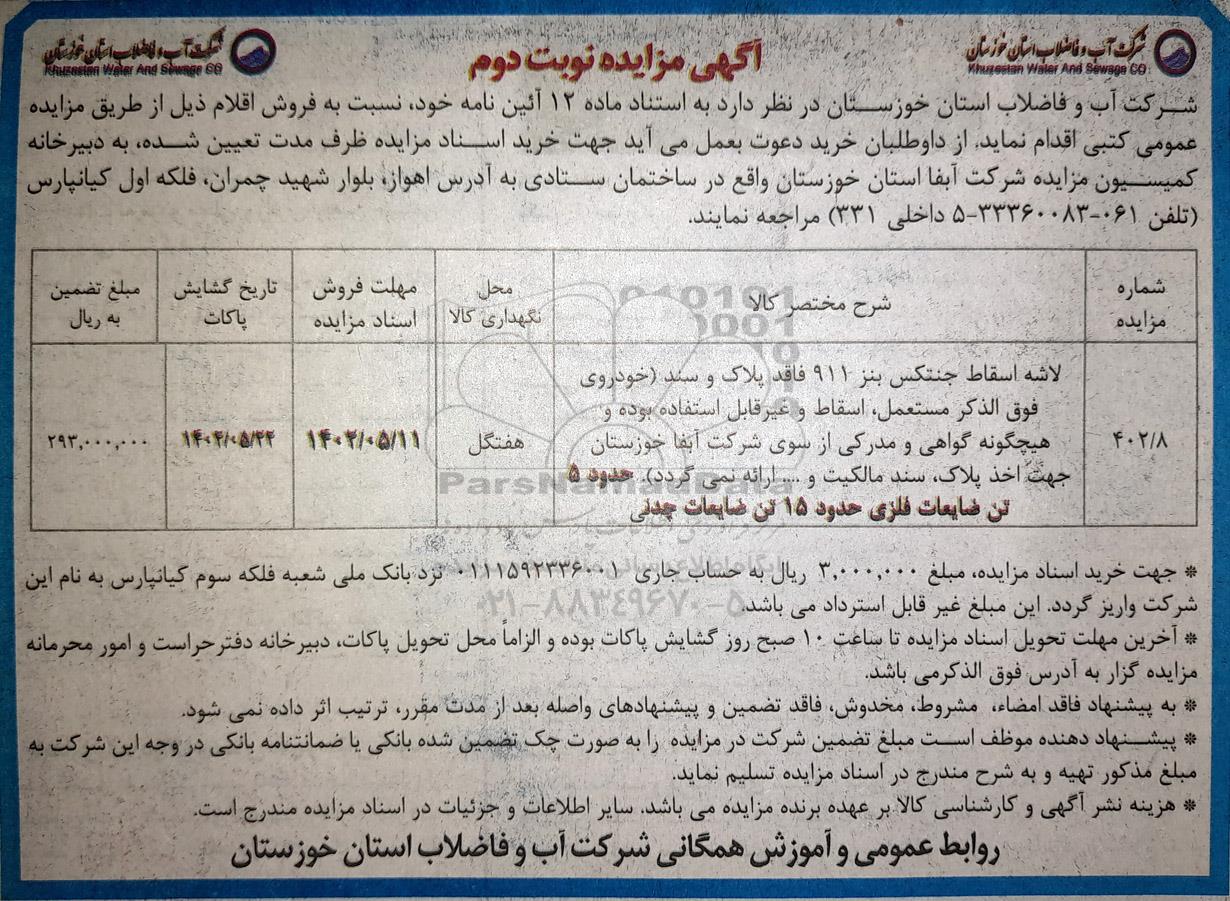 شرکت آب و فاضلاب استان خوزستان
Khuzestan Water And Sewage CO
شرکت آب و فاضلاب استان خوزستان
Khuzestan Water And Sewage CO
آگهی مزایده نوبت دوم
شرکت آب و فاضلاب استان خوزستان در نظر دارد به استناد ماده ۱۲ آئین نامه خود، نسبت به فروش اقلام ذیل از طریق مزایده
عمومی کتبی اقدام نماید. از داوطلبان خرید دعوت بعمل می آید جهت خرید اسناد مزایده ظرف مدت تعیین شده، به دبیرخانه
کمیسیون مزایده شرکت آبفا استان خوزستان واقع در ساختمان ستادی به آدرس اهواز، بلوار شهید چمران، فلکه اول کیانپارس
(تلفن ۰۶۱-۳۳۳۶۰۰۸۳-۵ داخلی ۳۳۱) مراجعه نمایند.
شماره مزایده
شرح مختصر کالا
محل نگهداری کالا
مهلت فروش اسناد مزایده
تاریخ گشایش پاکات
مبلغ تضمین به ریال
۴۰۲/۸
لاشه اسقاط جنتکس بنز ۹۱۱ فاقد پلاک و سند (خودروی
فوق الذکر مستعمل، اسقاط و غیرقابل استفاده بوده و
هیچگونه گواهی و مدرکی از سوی شرکت آبفا خوزستان
جهت اخذ پلاک، سند مالکیت و .... ارائه نمی گردد). حدود ۵
تن ضایعات فلزی حدود ۱۵ تن ضایعات چدنی
هفتگل
۱۴۰۲/۰۵/۱۱
۱۴۰۲/۰۵/۲۲
۲۹۳,۰۰۰,۰۰۰
ParsNamadData
۰۲۱-۸۸۳۴۹۶۷۰-۵
* جهت خرید اسناد مزایده، مبلغ ۳,۰۰۰,۰۰۰ ریال به حساب جاری ۰۱۱۱۵۹۲۳۳۶۰۰۱ نزد بانک ملی شعبه فلکه سوم کیانپارس به نام این
شرکت واریز گردد. این مبلغ غیر قابل استرداد می باشد.
* آخرین مهلت تحویل اسناد مزایده تا ساعت ۱۰ صبح روز گشایش پاکات بوده و الزاماً محل تحویل پاکات، دبیرخانه دفترحراست و امور محرمانه
مزایده گزار به آدرس فوق الذکرمی باشد.
* به پیشنهاد فاقد امضاء، مشروط، مخدوش، فاقد تضمین و پیشنهادهای واصله بعد از مدت مقرر، ترتیب اثر داده نمی شود.
* پیشنهاد دهنده موظف است مبلغ تضمین شرکت در مزایده را به صورت چک تضمین شده بانکی یا ضمانتنامه بانکی در وجه این شرکت به
مبلغ مذکور تهیه و به شرح مندرج در اسناد مزایده تسلیم نماید.
* هزینه نشر آگهی و کارشناسی کالا بر عهده برنده مزایده می باشد. سایر اطلاعات و جزئیات در اسناد مزایده مندرج است.
روابط عمومی و آموزش همگانی شرکت آب و فاضلاب استان خوزستان